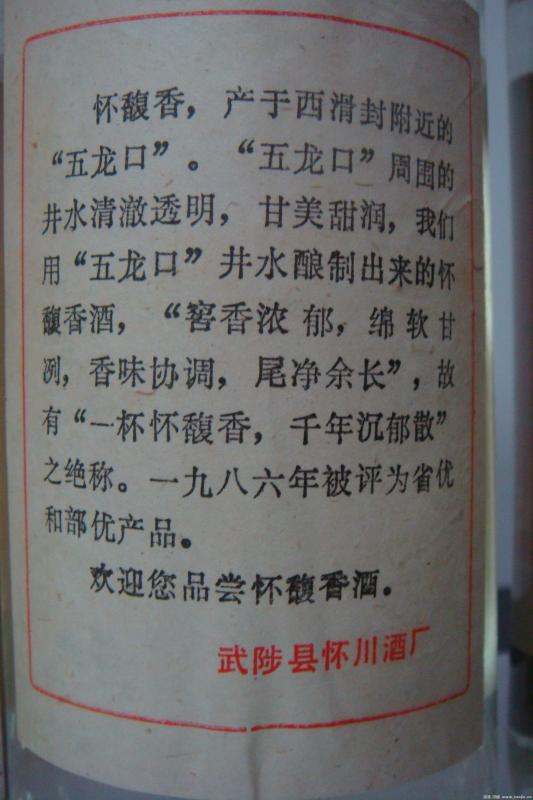 怀馥香，产于西滑封附近的
“五龙口”。“五龙口”周围的
井水清澈透明，甘美甜润，我们
用“五龙口”井水酿制出来的怀
馥香酒，“窖香浓郁，绵软甘
冽，香味协调，尾净余长”，故
有“一杯怀馥香，千年沉郁散”
之绝称。一九八六年被评为省优
和部优产品。
欢迎您品尝怀馥香酒。
武陟县怀川酒厂